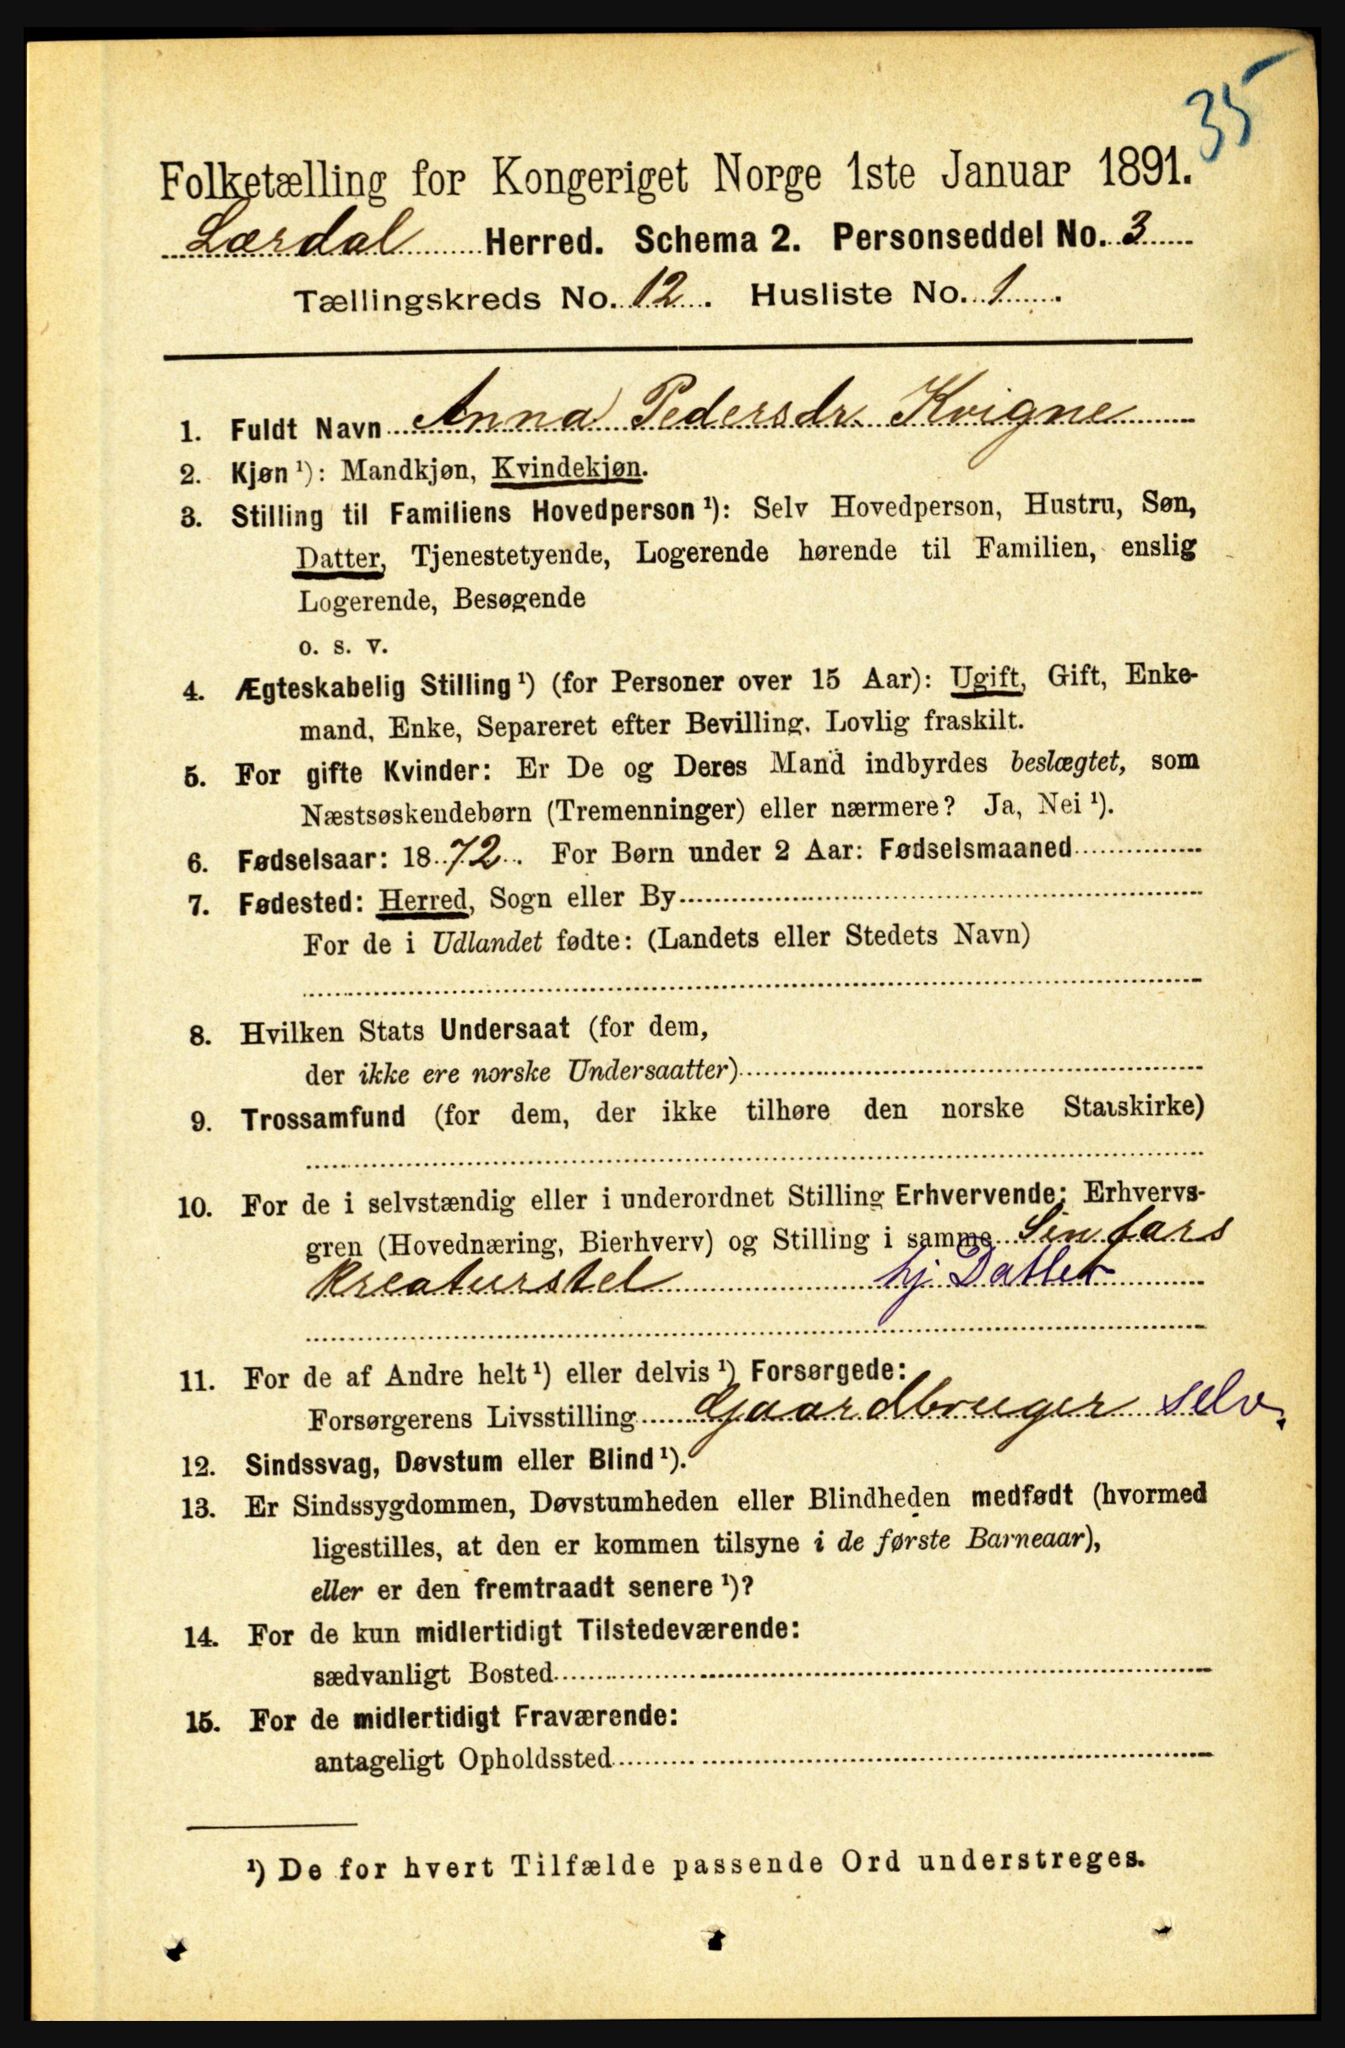 35
Folketælling for Kongeriget Norge 1ste Januar 1891.
Lærdal Herred. Schema 2. Personseddel No. 3
Tællingskreds No. 12. Husliste No. 1.
1. Fuldt Navn Anna Pedersdr. Kvigne
2. Kjøn ¹): Mandkjøn, Kvindekjøn.
3. Stilling til Familiens Hovedperson ¹): Selv Hovedperson, Hustru, Søn,
Datter, Tjenestetyende, Logerende hørende til Familien, enslig
Logerende, Besøgende
o. s. v.
4. Ægteskabelig Stilling ¹) (for Personer over 15 Aar): Ugift, Gift, Enke-
mand, Enke, Separeret efter Bevilling, Lovlig fraskilt.
5. For gifte Kvinder: Er De og Deres Mand indbyrdes beslægtet, som
Næstsøskendebørn (Tremenninger) eller nærmere? Ja, Nei ¹).
6. Fødselsaar: 1872. For Børn under 2 Aar: Fødselsmaaned
7. Fødested: Herred, Sogn eller By
For de i Udlandet fødte: (Landets eller Stedets Navn)
8. Hvilken Stats Undersaat (for dem,
der ikke ere norske Undersaatter)
9. Trossamfund (for dem, der ikke tilhøre den norske Statskirke)
10. For de i selvstændig eller i underordnet Stilling Erhvervende: Erhvervs-
gren (Hovednæring, Bierhverv) og Stilling i samme Sin fars
Kreaturstel hj. Datter
11. For de af Andre helt ¹) eller delvis ¹) Forsørgede:
Forsørgerens Livsstilling Gaardbruger selv.
12. Sindssvag, Døvstum eller Blind ¹).
13. Er Sindssygdommen, Døvstumheden eller Blindheden medfødt (hvormed
ligestilles, at den er kommen tilsyne i de første Barneaar),
eller er den fremtraadt senere ¹)?
14. For de kun midlertidigt Tilstedeværende:
sædvanligt Bosted
15. For de midlertidigt Fraværende:
antageligt Opholdssted
¹) De for hvert Tilfælde passende Ord understreges.